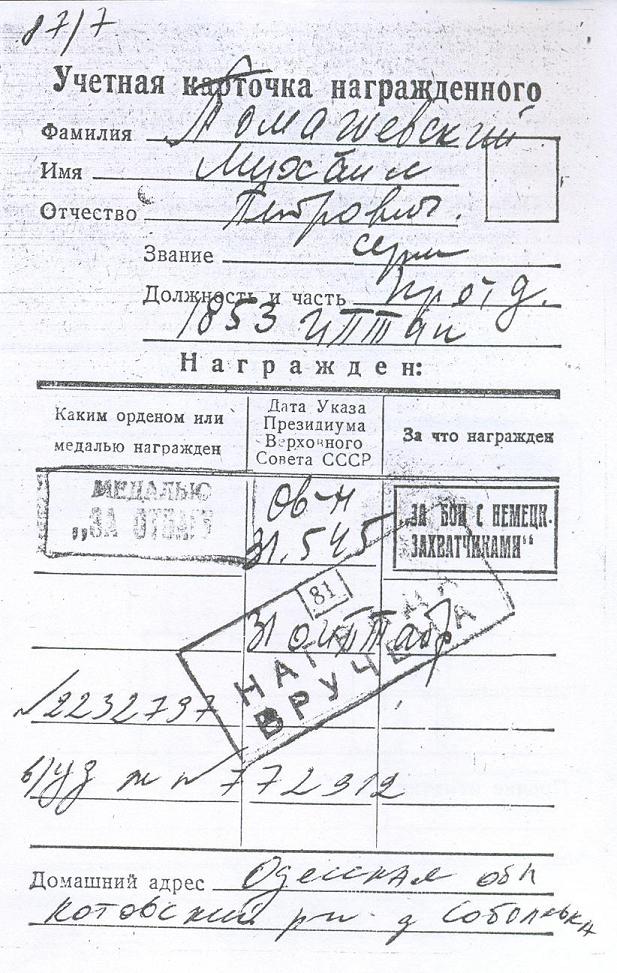 87/7
Учетная карточка награжденного
Фамилия Домашевский
Имя Михаил
Отчество Петрович.
Звание серж
Должность и часть
1853 ИПТАП
Награжден:
Каким орденом или медалью награжден
Дата Указа Президиума Верховного Совета СССР
За что награжден
МЕДАЛЬЮ
„ЗА ОТВАГУ
31.5 45
„ЗА БОИ С НЕМЕЦК.
ЗАХВАТЧИКАМИ“
81
31 ОИПТАБр
НАГРАДА
ВРУЧЕНА
№2232797
в/уд м № 772312
Домашний адрес Одесская обл
Котовский рн д Соболевка